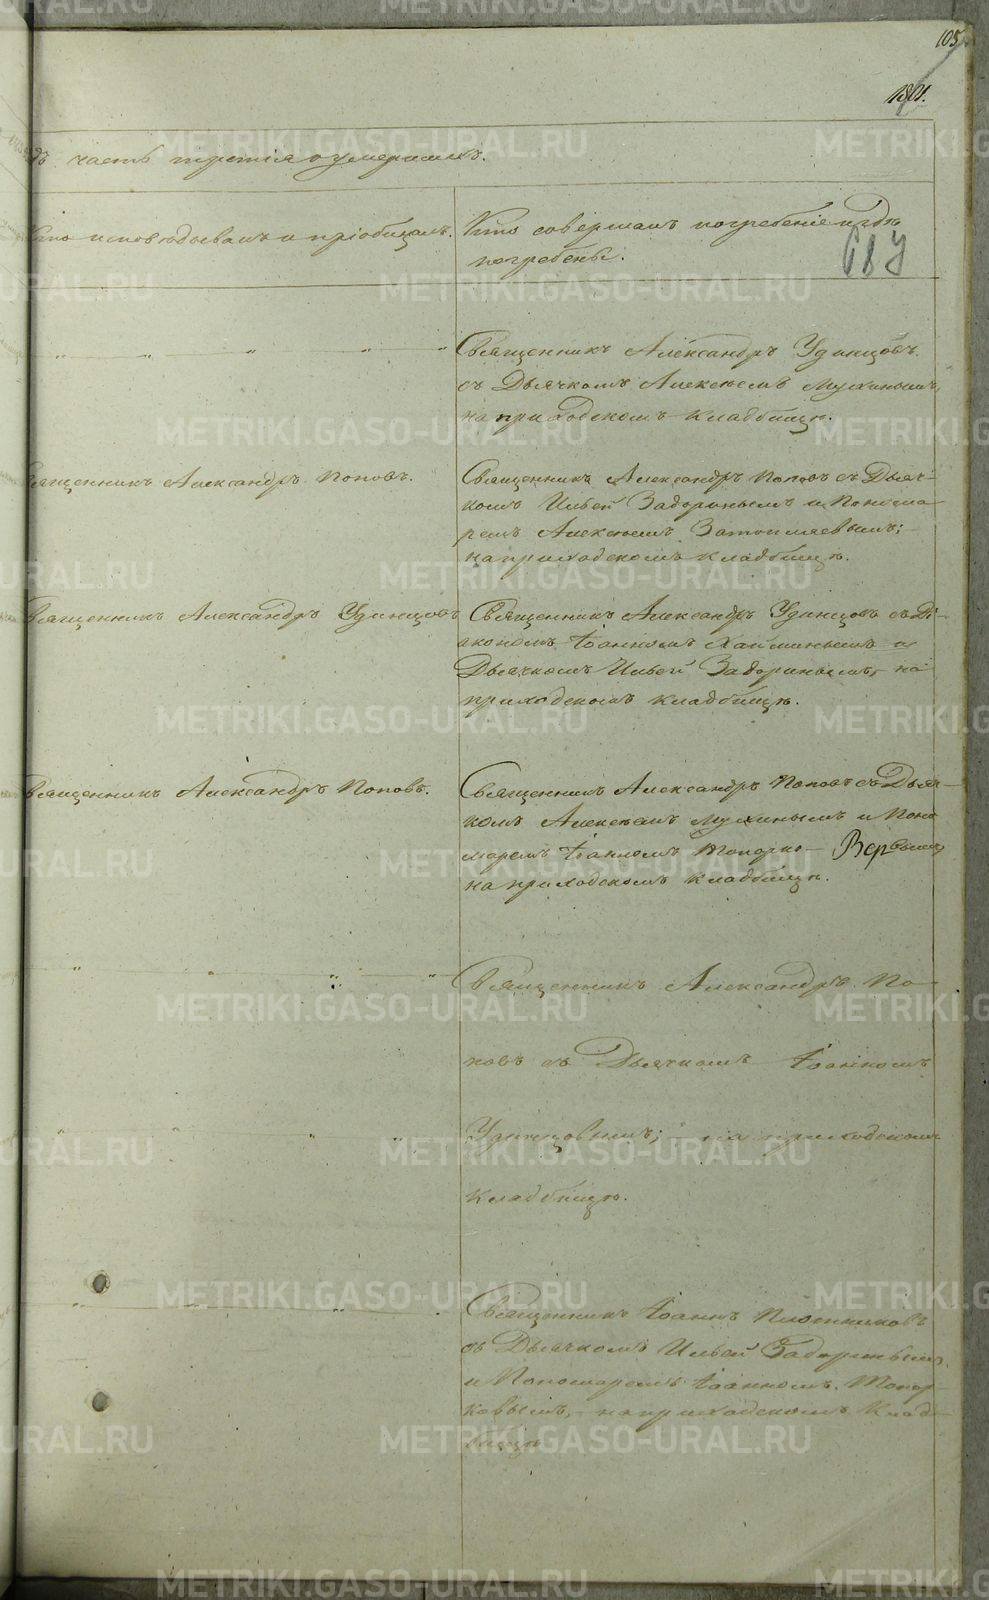 105
1801.
дъ часть третія о умершихъ.
Кто исповѣдывалъ и пріобщалъ.
Кто совершалъ погребеніе и гдѣ
погребены.
687
Священникъ Александръ Удинцовъ
съ Дьячкомъ Алексѣемъ Мухинымъ,
на приходскомъ кладбищѣ.
Священникъ Александръ Поповъ.
Священникъ Александръ Поповъ съ Дьяч-
комъ Ильей Задоринымъ и Понома-
ремъ Алексѣемъ Затопляевымъ;
на приходскомъ кладбищѣ.
Священникъ Александръ Удинцовъ
Священникъ Александръ Удинцовъ съ Ді-
акономъ Іоанномъ Хайминымъ и
Дьячкомъ Ильей Задоринымъ, на
приходскомъ кладбищѣ.
Священникъ Александръ Поповъ.
Священникъ Александръ Поповъ съ Дьяч-
комъ Алексѣемъ Мухинымъ и Поно
маремъ Іоанномъ Топорко-
на приходскомъ кладбищѣ.
Священникъ Александръ По-
повъ съ Дьячкомъ Іоанномъ
Удинцовымъ; на приходскомъ
кладбищѣ.
Священникъ Іоаннъ Плотниковъ
съ Дьячкомъ Ильей Задоринымъ
и Пономаремъ Іоанномъ Топор-
ковымъ, на приходскомъ Клад-
бищѣ
METRIKI.GASO-URAL.RU